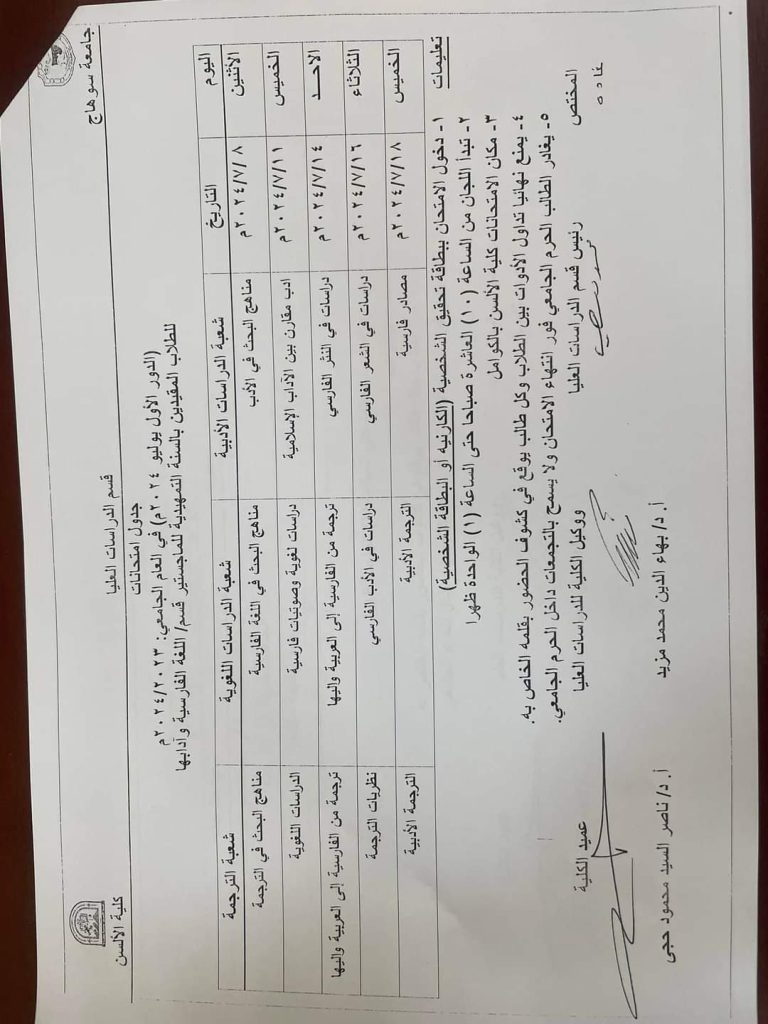 جامعة سوهاج
قسم الدراسات العليا
كلية الألسن
جدول امتحانات
(الدور الأول يوليو ٢٠٢٤م) في العام الجامعي: ٢٠٢٤/٢٠٢٣م
للطلاب المقيدين بالسنة التمهيدية للماجستير قسم/ اللغة الفارسية وآدابها
اليوم التاريخ شعبة الدراسات الأدبية شعبة الدراسات اللغوية شعبة الترجمة
الأثنين ٢٠٢٤/٧/٨م مناهج البحث في الأدب مناهج البحث في اللغة الفارسية مناهج البحث في الترجمة
الخميس ٢٠٢٤/٧/١١م ادب مقارن بين الآداب الإسلامية دراسات لغوية وصوتيات فارسية الدراسات اللغوية
الاحد ٢٠٢٤/٧/١٤م دراسات في النثر الفارسي ترجمة من الفارسية إلى العربية واليها ترجمة من الفارسية إلى العربية واليها
الثلاثاء ٢٠٢٤/٧/١٦م دراسات في الشعر الفارسي دراسات في الأدب الفارسي نظريات الترجمة
الخميس ٢٠٢٤/٧/١٨م مصادر فارسية الترجمة الأدبية الترجمة الأدبية
تعليمات ١- دخول الامتحان ببطاقة تحقيق الشخصية (الكارنيه أو البطاقة الشخصية)
٢- تبدأ اللجان من الساعة (١٠) العاشرة صباحا حتى الساعة (١) الواحدة ظهرا
٣- مكان الامتحانات كلية الألسن بالكوامل
٤- يمنع نهائيا تداول الأدوات بين الطلاب وكل طالب يوقع في كشوف الحضور بقلمه الخاص به.
٥- يغادر الطالب الحرم الجامعي فور انتهاء الامتحان ولا يسمح بالتجمعات داخل الحرم الجامعي.
المختص رئيس قسم الدراسات العليا ووكيل الكلية للدراسات العليا عميد الكلية
غاده
أ.د/ بهاء الدين محمد مزيد أ.د/ ناصر السيد محمود حجى